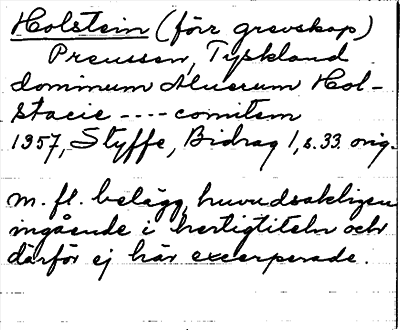 Holstein (förr grevskap)
Preussen, Tyskland
dominum Aluerum Hol-
stacie ---- comitem
1957, Styffe, Bidrag 1, s. 33. orig.
m. fl. belägg, huvudsakligen
ingående i hertigtiteln och
därför ej här excerperade.